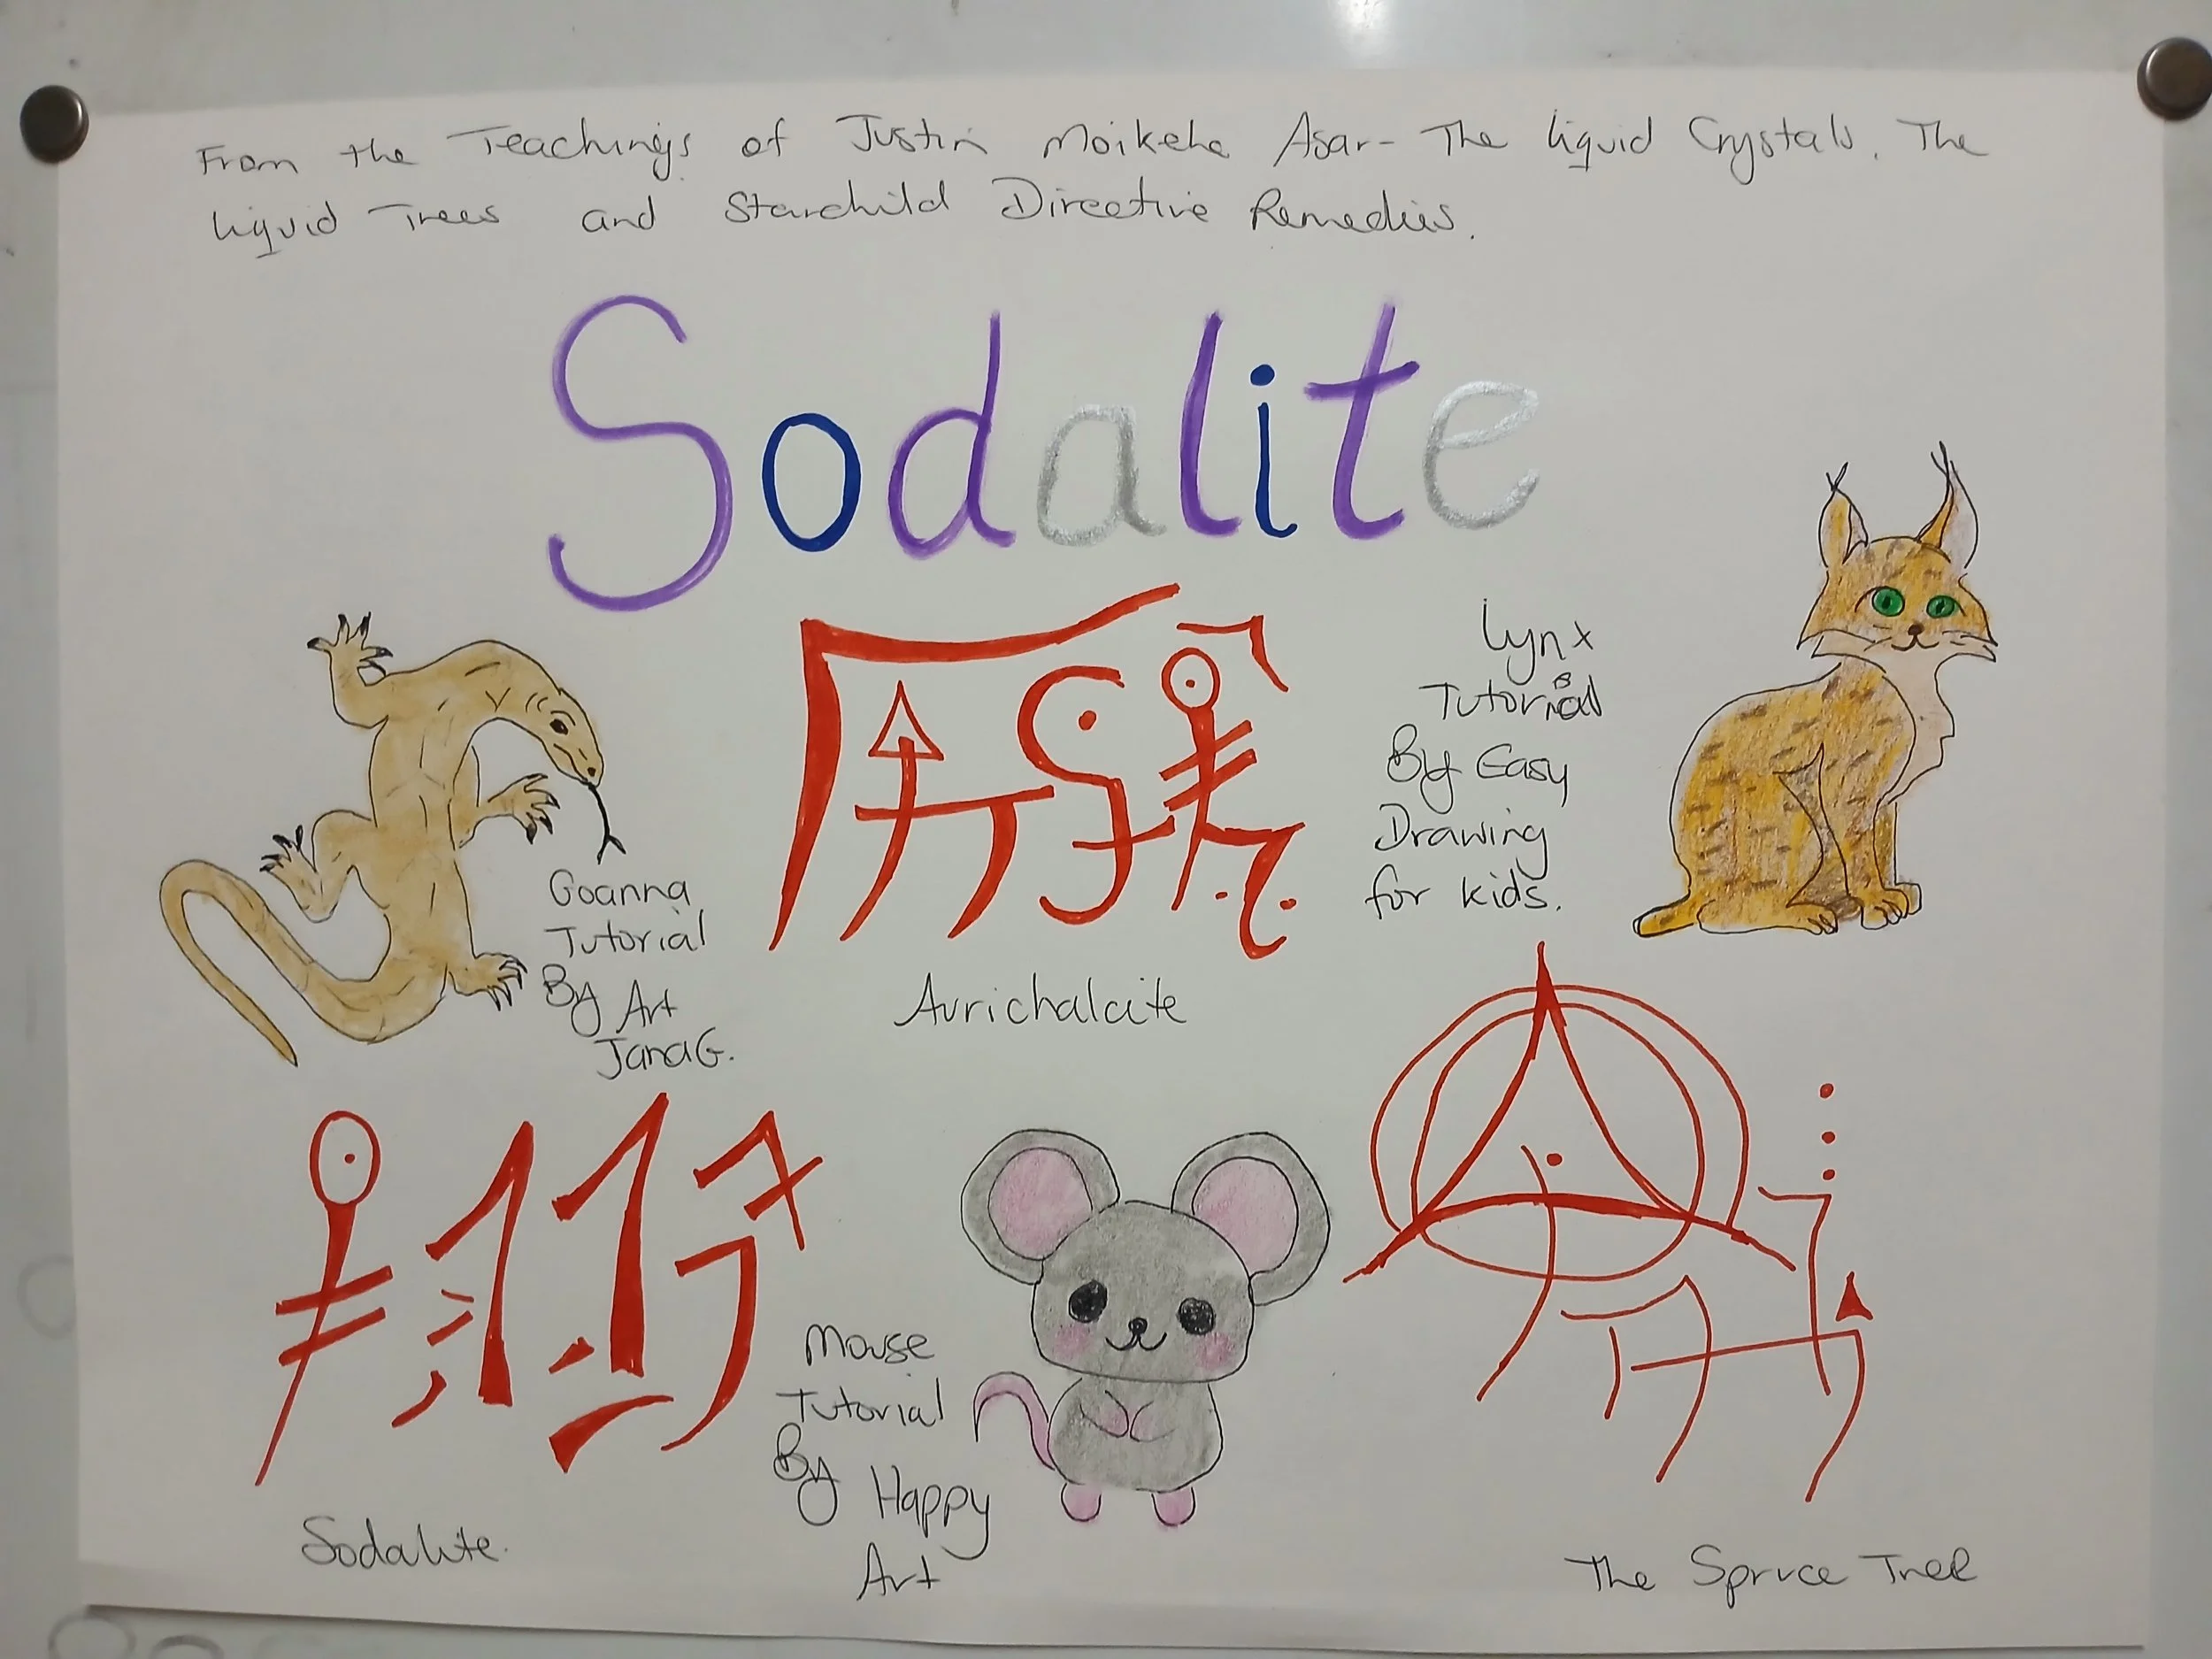 From the Teachings of Justin Moikeha Asar - The Liquid Crystals. The
Liquid Trees and Starchild Directive Remedies.
Sodalite
Lynx
Tutorial
By Easy
Drawing
for kids.
Goanna
Tutorial
By Art
JanaG.
Aurichalcite
Mouse
Tutorial
By Happy
Art
Sodalite.
The Spruce Tree